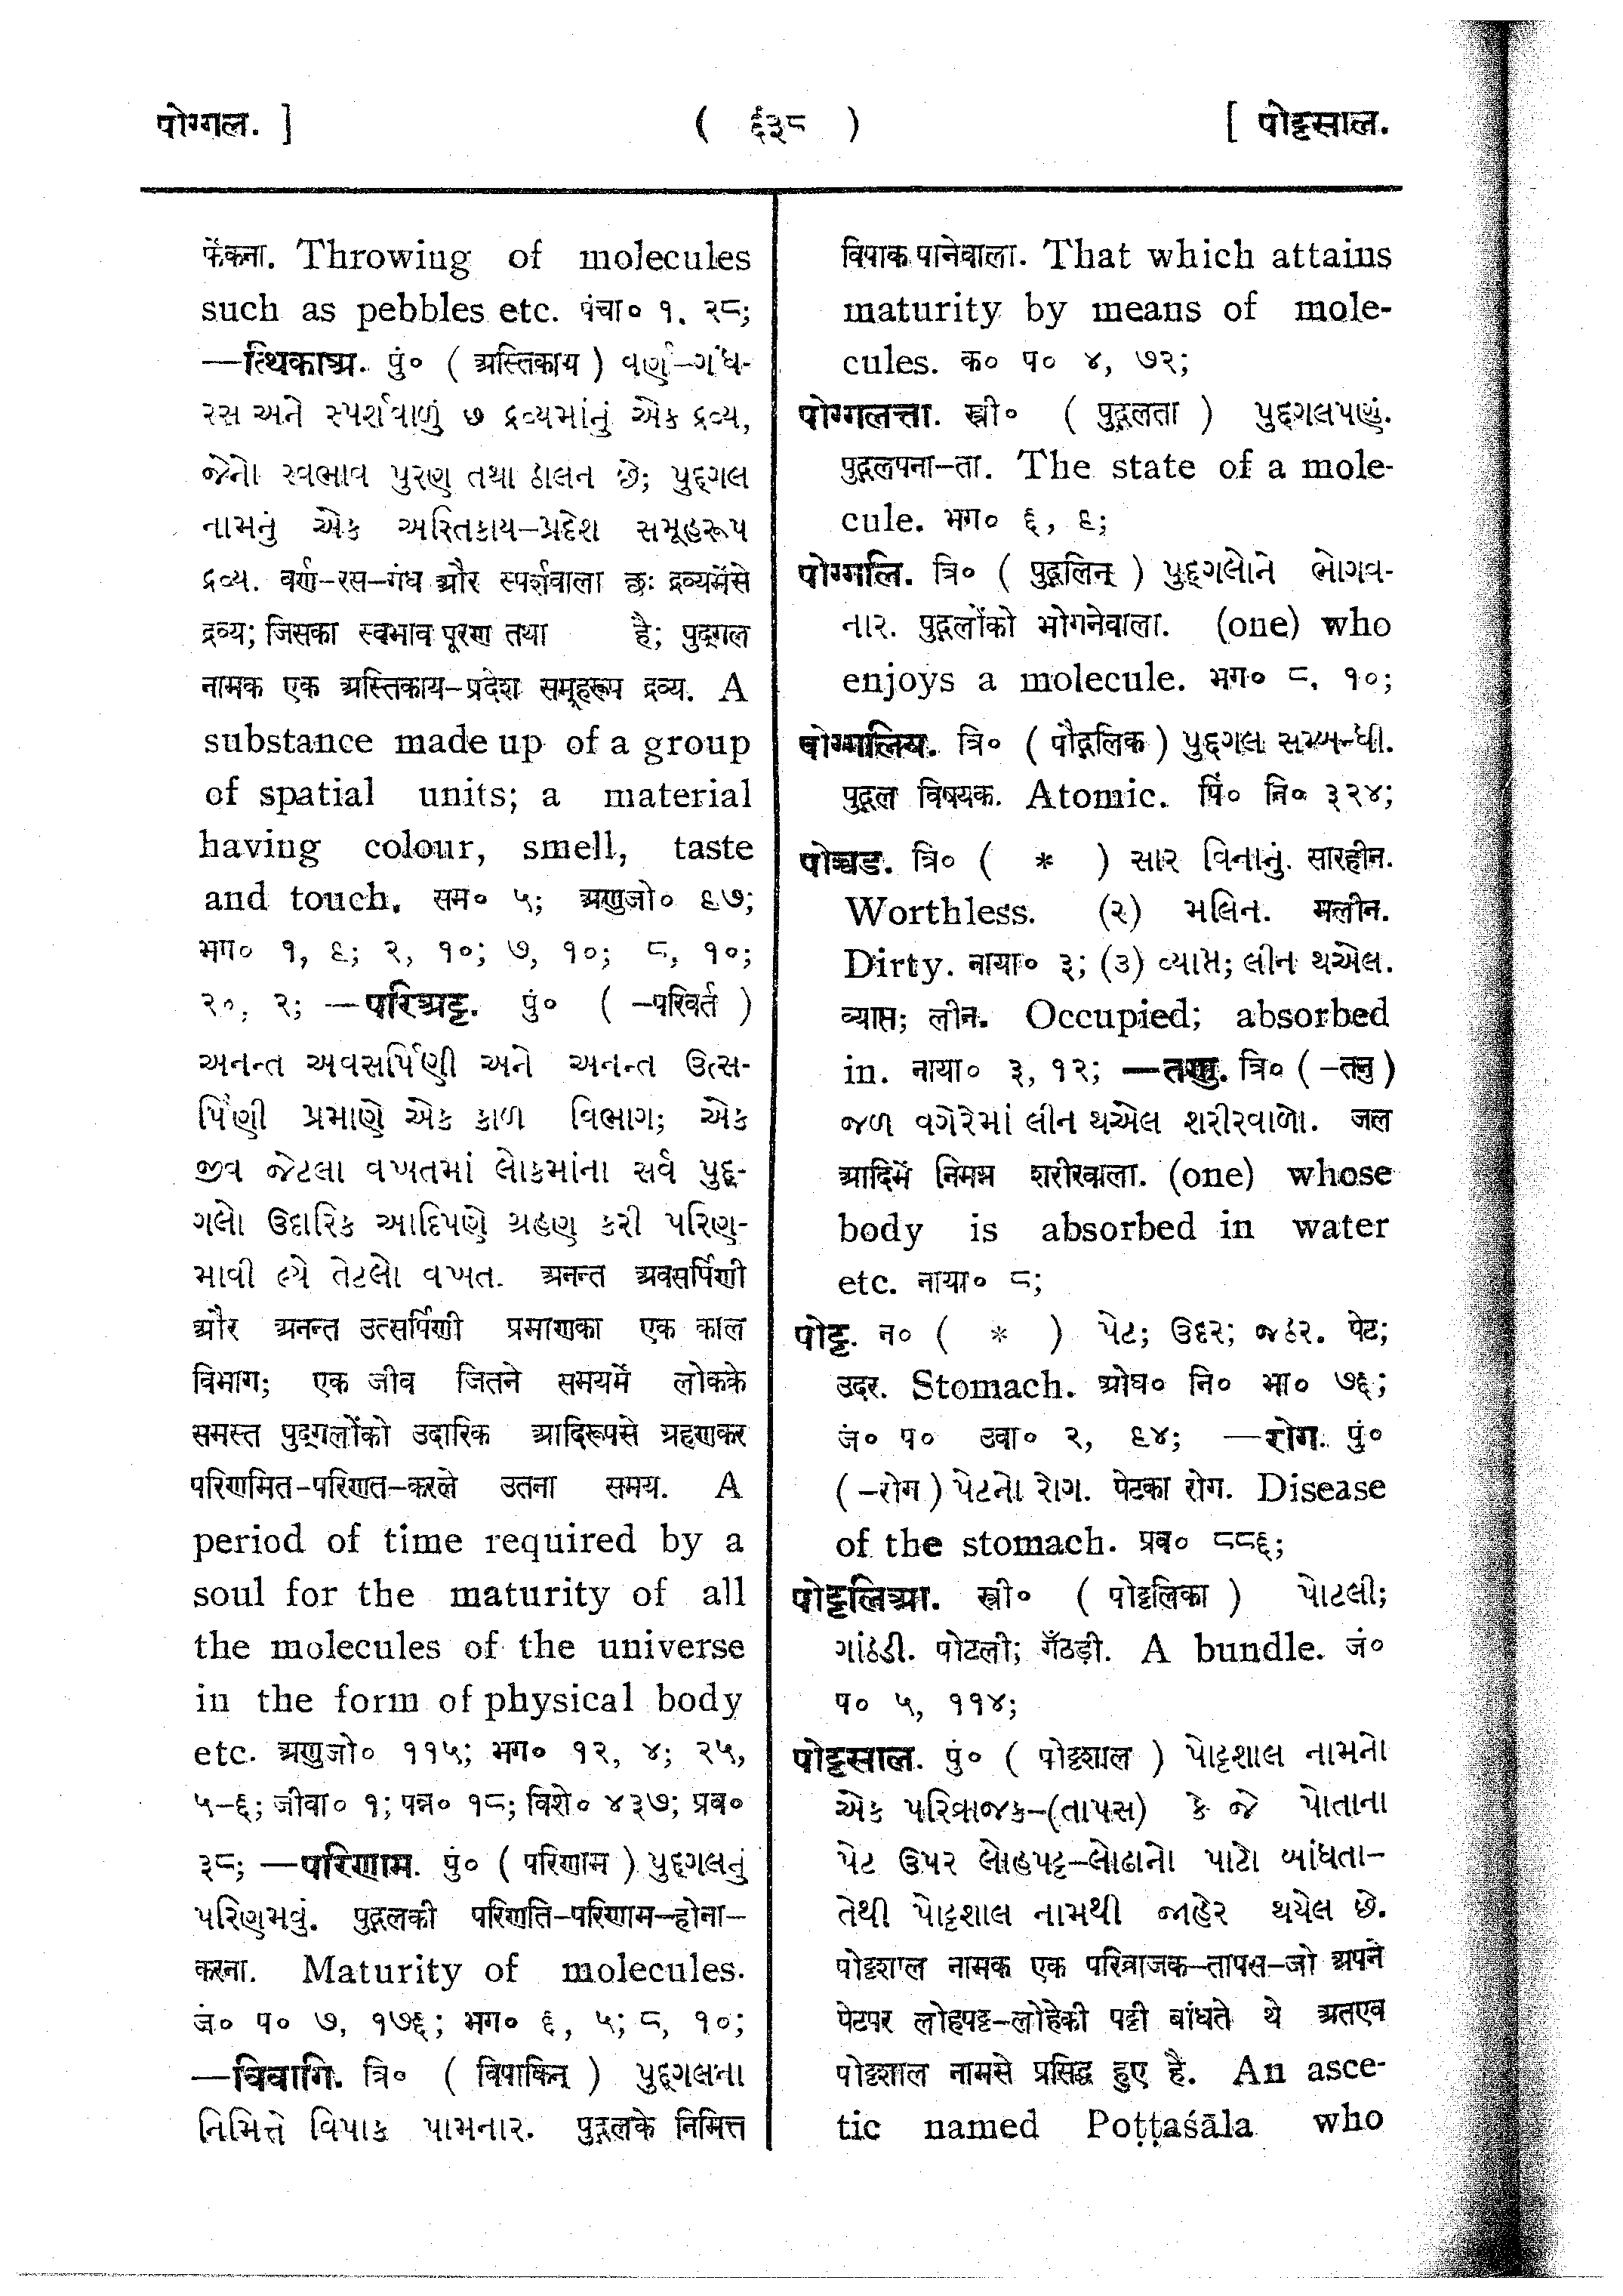 पोग्गल. ]
( ६३८ )
[ पोट्टसाल.
फेंकना. Throwing of molecules
such as pebbles etc. पंचा० १, २८;
—त्थिकाअ. पुं० ( अस्तिकाय ) વર્ણ–ગંધ-
રસ અને સ્પર્શવાળું ૭ દ્રવ્યમાંનું એક દ્રવ્ય,
જેનો સ્વભાવ પુરણ તથા ઠાલન છે; પુદ્ગલ
નામનું એક અસ્તિકાય–પ્રદેશ સમૂહરૂપ
દ્રવ્ય. वर्ण–रस–गंध और स्पर्शवाला छः द्रव्यमेंसे
द्रव्य; जिसका स्वभाव पूरण तथा है; पुद्गल
नामक एक अस्तिकाय–प्रदेश समूहरूप द्रव्य. A
substance made up of a group
of spatial units; a material
having colour, smell, taste
and touch. सम० ५; अणुजो० ६७;
भग० १, ६; २, १०; ७, १०; ८, १०;
२०, २; —परिअट्ट. पुं० ( –परिवर्त )
અનન્ત અવસર્પિણી અને અનન્ત ઉત્સ-
ર્પિણી પ્રમાણે એક કાળ વિભાગ; એક
જીવ જેટલા વખતમાં લોકમાંના સર્વ પુદ્-
ગલો ઉદારિક આદિપણે ગ્રહણ કરી પરિણ-
માવી લ્યે તેટલો વખત. अनन्त अवसर्पिणी
और अनन्त उत्सर्पिणी प्रमाणका एक काल
विभाग; एक जीव जितने समयमें लोकके
समस्त पुद्गलोंको उदारिक आदिरूपसे ग्रहणकर
परिणमित-परिणत–करले उतना समय. A
period of time required by a
soul for the maturity of all
the molecules of the universe
in the form of physical body
etc. अणुजो० ११५; भग० १२, ४; २५,
५–६; जीवा० १; पन्न० १८; विशे० ४३७; प्रव०
३८; —परिणाम. पुं० ( परिणाम ) પુદ્ગલનું
પરિણમવું. पुद्गलकी परिणति–परिणाम–होना–
करना. Maturity of molecules.
जं० प० ७, १७६; भग० ६, ५; ८, १०;
—विवागि. त्रि० ( विपाकिन् ) પુદ્ગલના
નિમિત્તે વિપાક પામનાર. पुद्गलके निमित्त
विपाक पानेवाला. That which attains
maturity by means of mole-
cules. क० प० ४, ७२;
पोग्गलत्ता. स्त्री० ( पुद्गलता ) પુદ્ગલપણું.
पुद्गलपना–ता. The state of a mole-
cule. भग० ६, ६;
पोग्गलि. त्रि० ( पुद्गलिन् ) પુદ્ગલોને ભોગવ-
નાર. पुद्गलोंको भोगनेवाला. (one) who
enjoys a molecule. भग० ८, १०;
पोग्गलिय. त्रि० ( पौद्गलिक ) પુદ્ગલ સમ્બન્ધી.
पुद्गल विषयक. Atomic. पिं० नि० ३२४;
पोच्चड. त्रि० ( * ) સાર વિનાનું. सारहीन.
Worthless. (२) મલિન. मलीन.
Dirty. नाया० ३; (૩) વ્યાપ્ત; લીન થએલ.
व्याप्त; लीन. Occupied; absorbed
in. नाया० ३, १२; —तणु. त्रि० ( –तनु )
જળ વગેરેમાં લીન થએલ શરીરવાળો. जल
आदिमें निमग्न शरीरवाला. (one) whose
body is absorbed in water
etc. नाया० ८;
पोट्ट. न० ( * ) પેટ; ઉદર; જઠર. पेट;
उदर. Stomach. ओघ० नि० भा० ७६;
जं० प० उवा० २, ६४; —रोग. पुं०
( –रोग ) પેટનો રોગ. पेटका रोग. Disease
of the stomach. प्रव० ८८६;
पोट्टलिआ. स्त्री० ( पोट्टलिका ) પોટલી;
ગાંઠડી. पोटली; गँठड़ी. A bundle. जं०
प० ५, ११४;
पोट्टसाल. पुं० ( पोट्टशाल ) પોટ્ટશાલ નામનો
એક પરિવ્રાજક–(તાપસ) કે જે પોતાના
પેટ ઉપર લોહપટ્ટ–લોઢાનો પાટો બાંધતા–
તેથી પોટ્ટશાલ નામથી જાહેર થયેલ છે.
पोट्टशाल नामक एक परिव्राजक–तापस–जो अपने
पेटपर लोहपट्ट–लोहेकी पट्टी बांधते थे अतएव
पोट्टशाल नामसे प्रसिद्ध हुए है. An asce-
tic named Poṭṭaśāla who